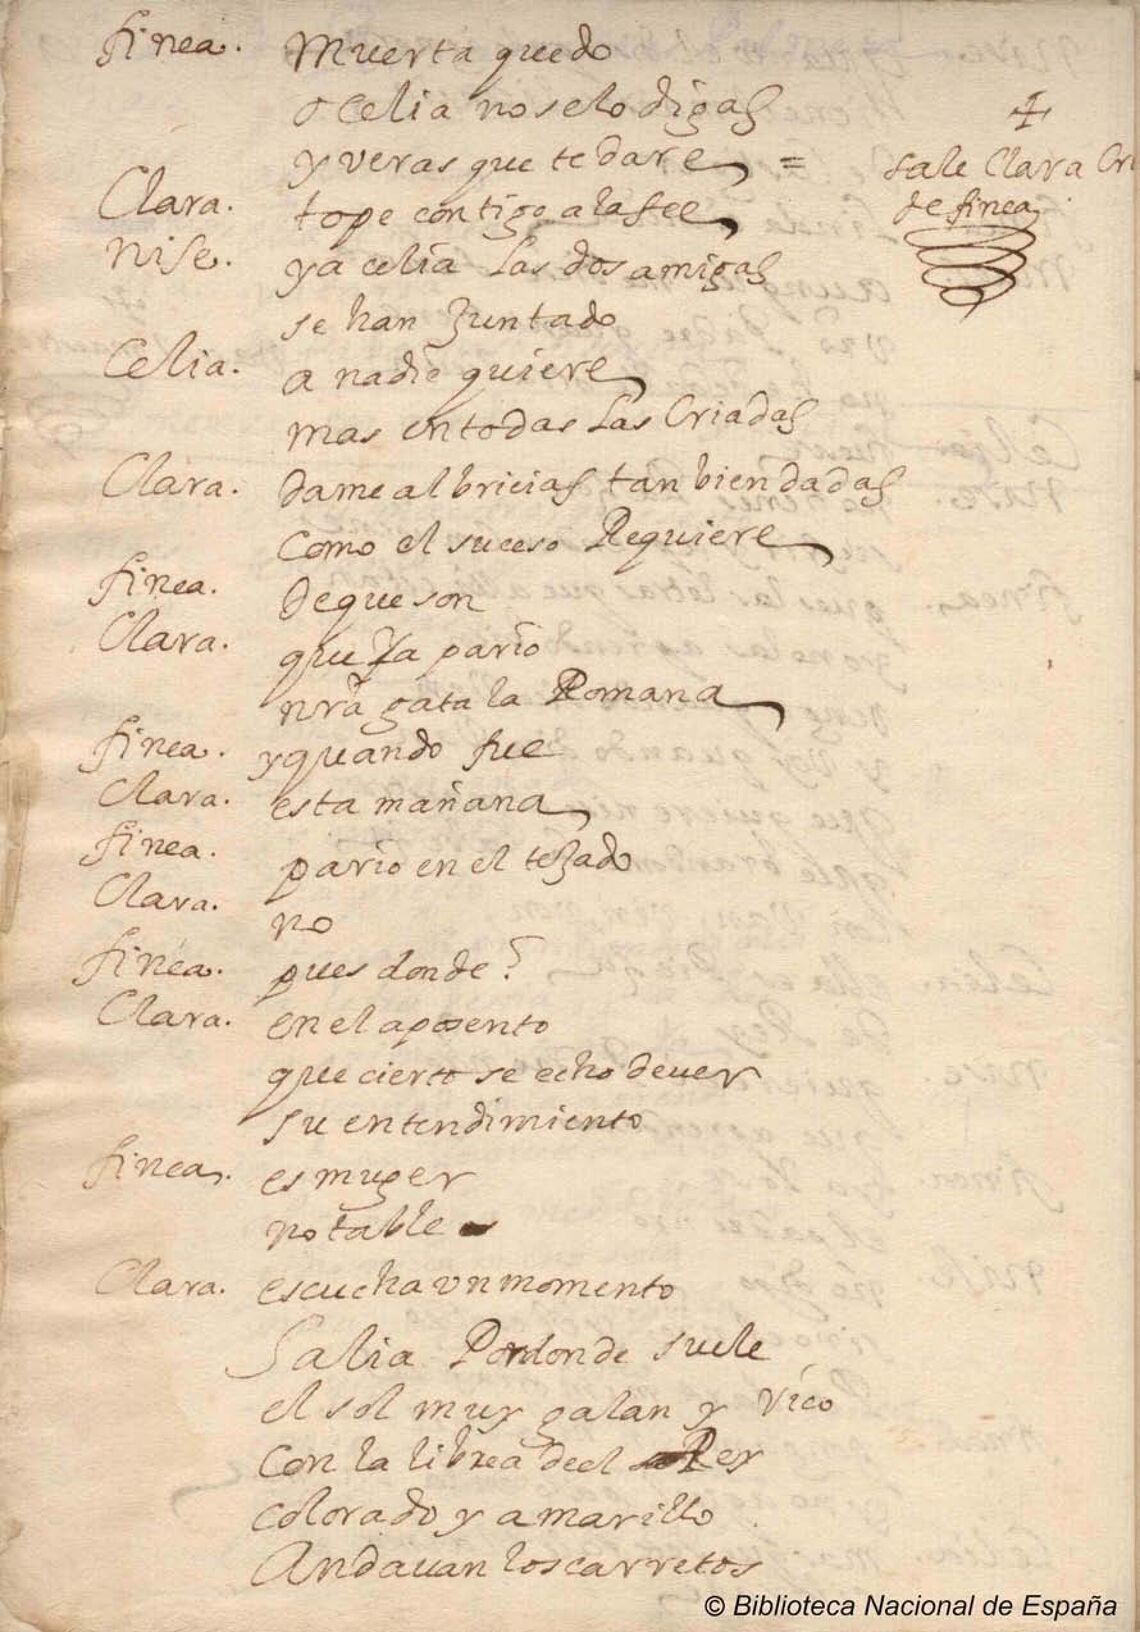 finea. Muerta quedo
o Celia no se lo digas
y veras que te dare =
+
sale Clara Cri
de finea
Clara. tope contigo a la fee
Nise. ya celia las dos amigas
se han Juntado
Celia. a nadie quiere
mas en todas las Criadas
Clara. dame albricias tan bien dadas
Como el suceso Requiere
finea. de que son
Clara. que ya pario
nrã gata la Romana
finea. y quando fue
Clara. esta mañana
finea. pario en el tejado
Clara. no
finea. pues donde?
Clara. en el aposento
que cierto se echo de uer
su entendimiento
finea. es muger
notable
Clara. escucha vn momento
Salia Por donde suele
el sol muy galan y rico
Con la librea de el Rey
colorado y amarillo
Andauan los carretos
© Biblioteca Nacional de España